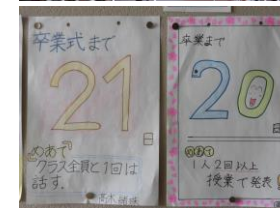 卒業式まで
21
日
めあて
クラス全員と1回は
話す。
卒業まで
20
日
めあて
1人2回以上
授業で発表